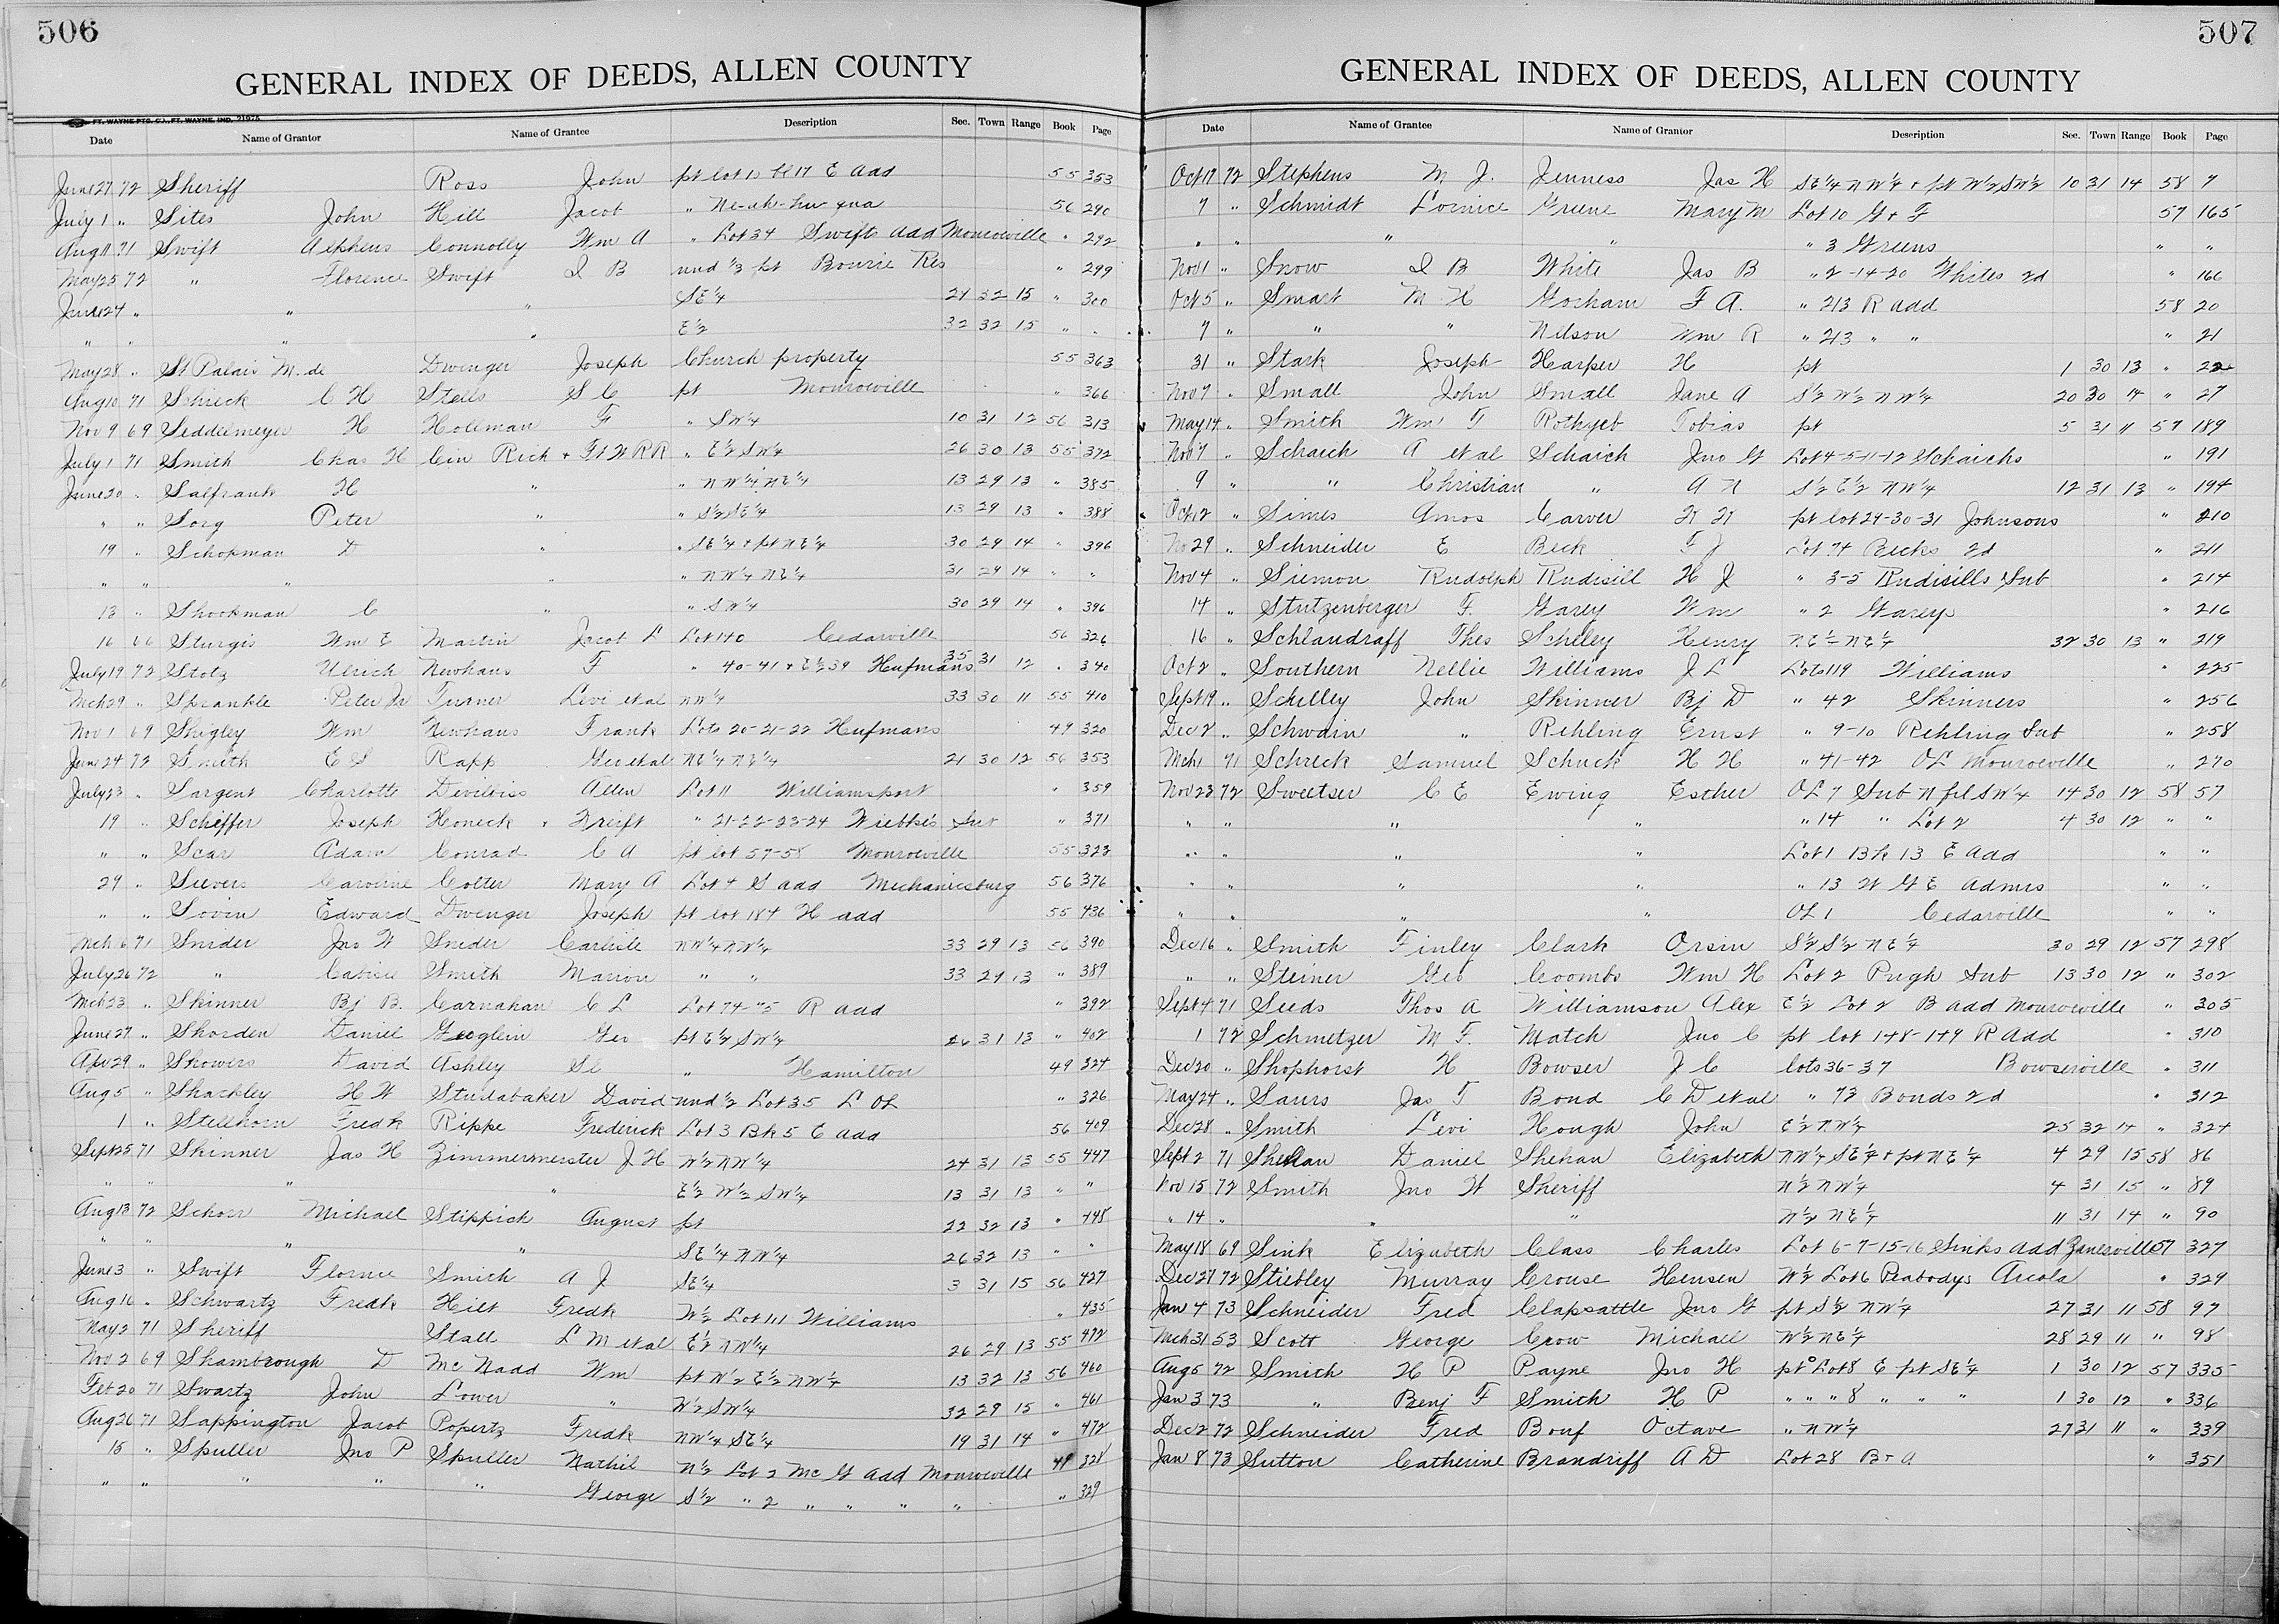 506
GENERAL INDEX OF DEEDS, ALLEN COUNTY
FT. WAYNE PTG. CO., FT. WAYNE, IND. 21975
Date Name of Grantor Name of Grantee Description Sec. Town Range Book Page
June 27 72 Sheriff Ross John pt lot 10 bl 17 E add 55 353
July 1 " Sites John Hill Jacob " 56 290
Aug 11 71 Swift Alpheus Connolly Wm A " Lot 34 Swifts add Monroeville " 292
May 25 72 " Florence Swift I B und 1/3 pt Bourie Res " 299
June 24 " " " SE 1/4 24 32 15 " 300
" " " " E 1/2 32 32 15 " "
May 28 " St Palais M. de Dwenger Joseph Church property 55 363
Aug 10 71 Schreck C H Stells S C pt Monroeville " 366
Nov 9 69 Seddelmeyer H Holeman F " SW 1/4 10 31 12 56 313
July 1 71 Smith Chas H Cin Rich + Ft W RR " E 1/2 SW 1/4 26 30 13 55 372
June 20 " Salfrank H " " NW 1/4 NE 1/4 13 29 13 " 385
" " Sorg Peter " " S 1/2 SE 1/4 13 29 13 " 388
19 " Schopman D " " SE 1/4 + pt NE 1/4 30 29 14 " 396
" " " " " NW 1/4 NE 1/4 31 29 14 " "
13 " Shookman C " " SW 1/4 30 29 14 " 396
16 66 Sturgis Wm E Martin Jacob L Lot 140 Cedarville 56 326
July 19 72 Stolz Ulrich Newhaus F " 40-41 + E 1/2 39 Hufmans 35 31 12 " 340
Mch 29 " Sprankle Peter Jr Turner Levi et al NW 1/4 33 30 11 55 410
Nov 1 69 Shigley Wm Newhaus Frank Lots 20-21-22 Hufmans 49 320
June 24 72 Smith E S Rapp Geo et al NE 1/4 NE 1/4 21 30 12 56 353
July 23 " Sargent Charlotte Devilbiss Allen Lot 11 Williamsport " 359
19 " Scheffer Joseph Honeck + Kreift " 21-22-23-24 Wiebke's Sub " 371
" " Scar Adam Conrad C A pt lot 57-58 Monroeville 55 323
29 " Sievers Caroline Colter Mary A Lot 4 S add Mechanicsburg 56 376
" " Sovin Edward Dwenger Joseph pt lot 184 H add 55 436
Mch 6 71 Snider Jno W Snider Carlisle NW 1/4 NW 1/4 33 29 13 56 390
July 26 72 " Smith Marion " " 33 29 13 " 389
Mch 23 " Skinner Bj B. Carnahan C L Lot 74-75 R add " 392
June 27 " Shorden Daniel Geo pt E 1/2 SW 1/4 26 31 13 " 402
Apr 29 " Showers David Ashley " Hamilton 49 324
Aug 5 " Shackley H W Studabaker David und 1/2 Lot 35 L OL " 326
1 " Stellhorn Fredk Rippe Frederick Lot 3 Bk 5 E add 56 409
Sept 25 71 Skinner Jas H Zimmermerster J H W 1/2 NW 1/4 24 31 13 55 447
" " " " E 1/2 W 1/2 SW 1/4 13 31 13 " "
Aug 13 72 Schorr Michael Stippich August pt 22 32 13 " 448
" " " " SE 1/4 NW 1/4 26 32 13 " "
June 3 " Swift Florence Smith A J SE 1/4 3 31 15 56 427
Aug 16 " Schwartz Fredk Hilt Fredk W 1/2 Lot 111 Williams " 435
May 2 71 Sheriff Stall L M et al E 1/2 NW 1/4 26 29 13 55 492
Nov 2 69 Shambrough D Mc Nadd Wm pt W 1/2 E 1/2 NW 1/4 13 32 13 56 460
Feb 20 71 Swartz John Lower " W 1/2 SW 1/4 32 29 15 " 461
Aug 26 71 Sappington Jacob Popertz Fredk NW 1/4 SE 1/4 19 31 14 " 472
15 " Spuller Jno P Spuller Nathil N 1/2 Lot 2 Mc G add Monroeville 49 328
" " " " " George S 1/2 " 2 " " " " " 329
507
GENERAL INDEX OF DEEDS, ALLEN COUNTY
Date Name of Grantee Name of Grantor Description Sec. Town Range Book Page
Oct 17 72 Stephens M J. Jenness Jas H SE 1/4 NW 1/4 + pt W 1/2 SW 1/4 10 31 14 58 7
7 " Schmidt Lornice Greene Mary M Lot 10 G + F 57 165
" " " " " 3 Greens " "
Nov 1 " Snow I B White Jas B " 2-14-20 Whites 2d " 166
Oct 5 " Smart M H Gorham F A. " 213 R add 58 20
7 " " " Nilson Wm R " 213 " " " 21
31 " Stark Joseph Harper H pt 1 30 13 " 22
Nov 7 " Small John Small Jane A S 1/2 W 1/2 NW 1/4 20 30 14 " 27
May 14 " Smith Wm F Rothgeb Tobias pt 5 31 11 57 189
Nov 7 " Schaich A et al Schaich Jno G Lot 4-5-11-12 Schaichs " 191
9 " " Christian " A N S 1/2 E 1/2 NW 1/4 12 31 13 " 194
Oct 12 " Simes Amos Carver pt lot 29-30-31 Johnsons " 210
No 29 " Schneider E Beck F J Lot 74 Becks 2d " 211
Nov 4 " Siemon Rudolph Rudisill H J " 3-5 Rudisills Sub " 214
14 " Stutzenberger F. Garey Wm " 2 Gareys " 216
16 " Schlandraff Thes Schiley Henry NE 1/4 NE 1/4 32 30 13 " 219
Oct 2 " Southern Nellie Williams J L Lots 119 Williams " 225
Sept 19 " Schelley John Skinner Bj D " 42 Skinners " 256
Dec 2 " Schwain " Rehling Ernst " 9-10 Rehling Sub " 258
Mch 1 71 Schreck Samuel Schuck H H " 41-42 OL Monroeville " 270
Nov 23 72 Sweetser C E Ewing Esther OL 7 Sub N frl SW 1/4 14 30 12 58 57
" " " " " 14 " Lot 2 4 30 12 " "
" " " " Lot 1 Blk 13 E add " "
" " " " " 13 W G E Admrs " "
" " " " OL 1 Cedarville " "
Dec 16 " Smith Finley Clark Orsin S 1/2 S 1/2 NE 1/4 30 29 12 57 298
" " Steiner Geo Coombs Wm H Lot 2 Pugh Sub 13 30 12 " 302
Sept 4 71 Seeds Thos A Williamson Alex E 1/2 Lot 2 B add Monroeville " 305
1 72 Schmetzer M F. Match Jno C pt lot 148-149 R Add " 310
Dec 20 " Shophorst H Bowser J C lots 36-37 Bowserville " 311
May 24 " Saurs Jas T Bond C D et al " 73 Bonds 2d " 312
Dec 28 " Smith Levi Hough John E 1/2 NW 1/4 25 32 14 " 324
Sept 2 71 Shehan Daniel Shehan Elizabeth NW 1/4 SE 1/4 + pt NE 1/4 4 29 15 58 86
Nov 15 72 Smith Jno W Sheriff N 1/2 NW 1/4 4 31 15 " 89
" 14 " " " N 1/2 NE 1/4 11 31 14 " 90
May 18 69 Sink Elizabeth Class Charles Lot 6-7-15-16 Sinks add Zanesville 57 327
Dec 27 72 Stiebley Murray Crouse Hensen W 1/2 Lot 6 Peabodys Arcola " 329
Jan 4 73 Schneider Fred Clapsattle Jno G pt S 1/2 NW 1/4 27 31 11 58 97
Mch 31 53 Scott George Crow Michael W 1/2 NE 1/4 28 29 11 " 98
Aug 5 72 Smith H P Payne Jno H pt Lot 8 E pt SE 1/4 1 30 12 57 335
Jan 3 73 " Benj F Smith H P " " " 8 " " " 1 30 12 " 336
Dec 2 72 Schneider Fred Bouf Octave " NW 1/4 27 31 11 " 339
Jan 8 73 Sutton Catherine Brandriff A D Lot 28 B + A " 351